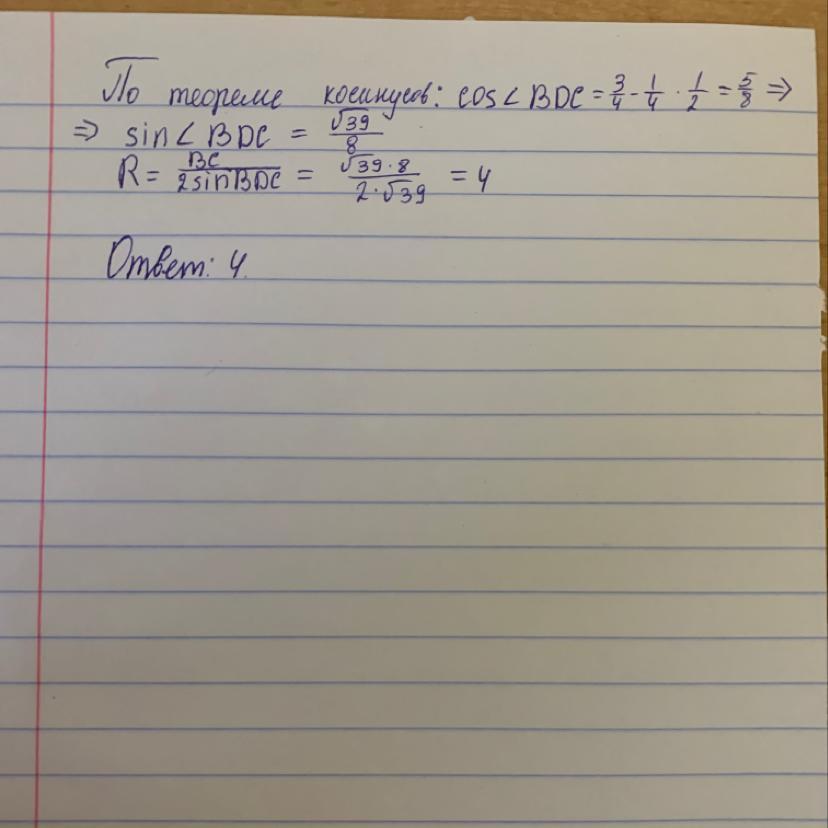 По теореме косинусов: cos∠BDC = 3/4 - 1/4 · 1/2 = 5/8 ⇒
⇒ sin∠BDC = √39/8
R = BC/2sinBDC = √39·8/2·√39 = 4
Ответ: 4.